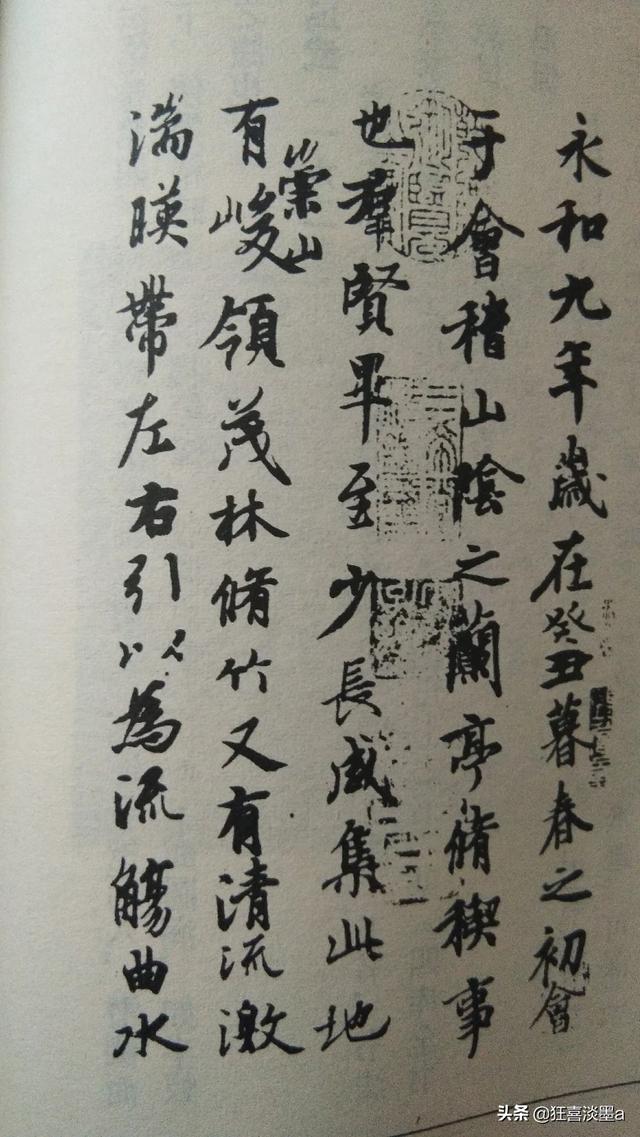 永和九年歲在癸丑暮春之初會
于會稽山陰之蘭亭脩稧事
也羣賢畢至少長咸集此地
有崇山峻領茂林脩竹又有清流激
湍暎帶左右引以為流觴曲水
头条 @狂喜淡墨a